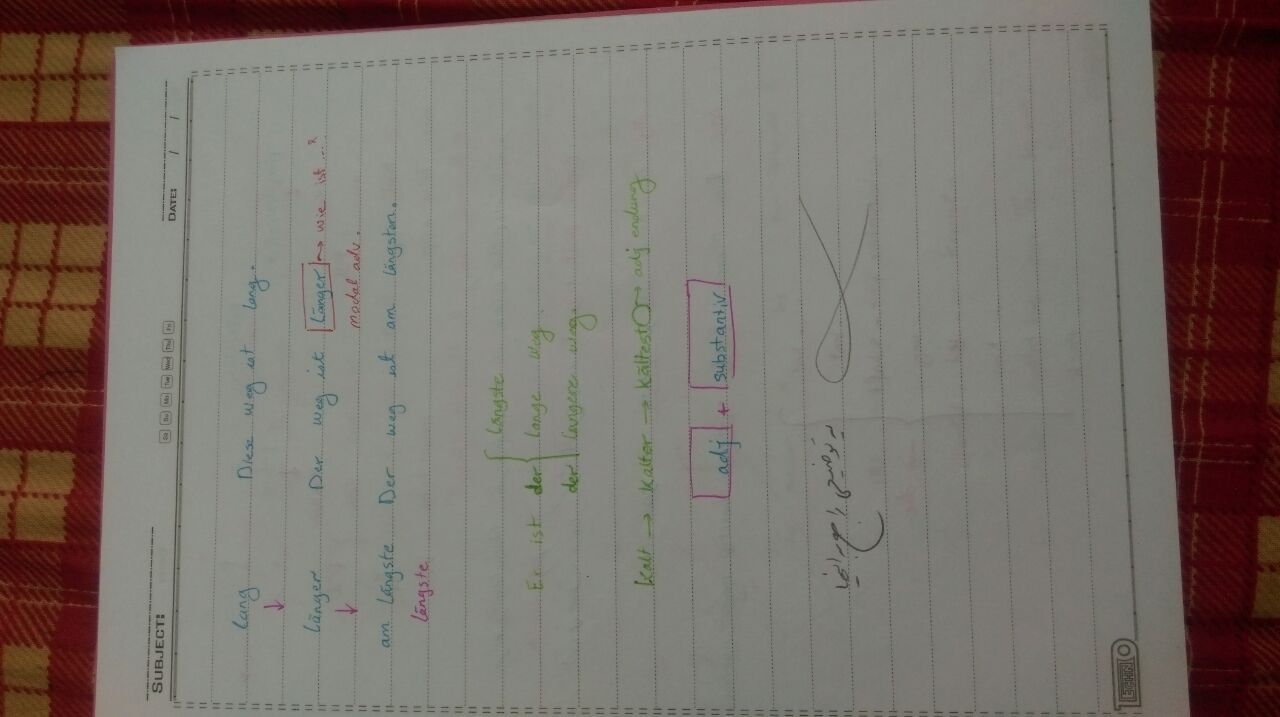 SUBJECT:
Sa Su Mo Tue Wed Thu Fri
DATE: / /
lang Diese weg ist lang.
↓
länger Der weg ist länger → wie ist...?
↓ modal adv.
am längste Der weg ist am längsten.
längste
längste
Er ist der lange weg.
der längere weg.
kalt → kälter → kältest → adj endung
adj + substantiv
یه توضیحی راجع به